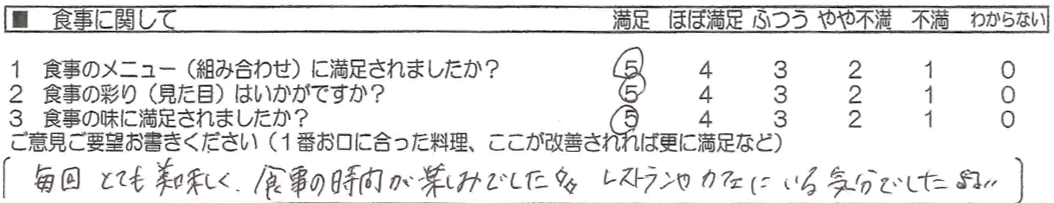 ■ 食事に関して 満足 ほぼ満足 ふつう やや不満 不満 わからない
1 食事のメニュー（組み合わせ）に満足されましたか？ 5 4 3 2 1 0
2 食事の彩り（見た目）はいかがですか？ 5 4 3 2 1 0
3 食事の味に満足されましたか？ 5 4 3 2 1 0
ご意見ご要望お書きください（１番お口に合った料理、ここが改善されれば更に満足など）
毎回 とても美味しく、食事の時間が楽しみでした レストランや カフェにいる気分でした